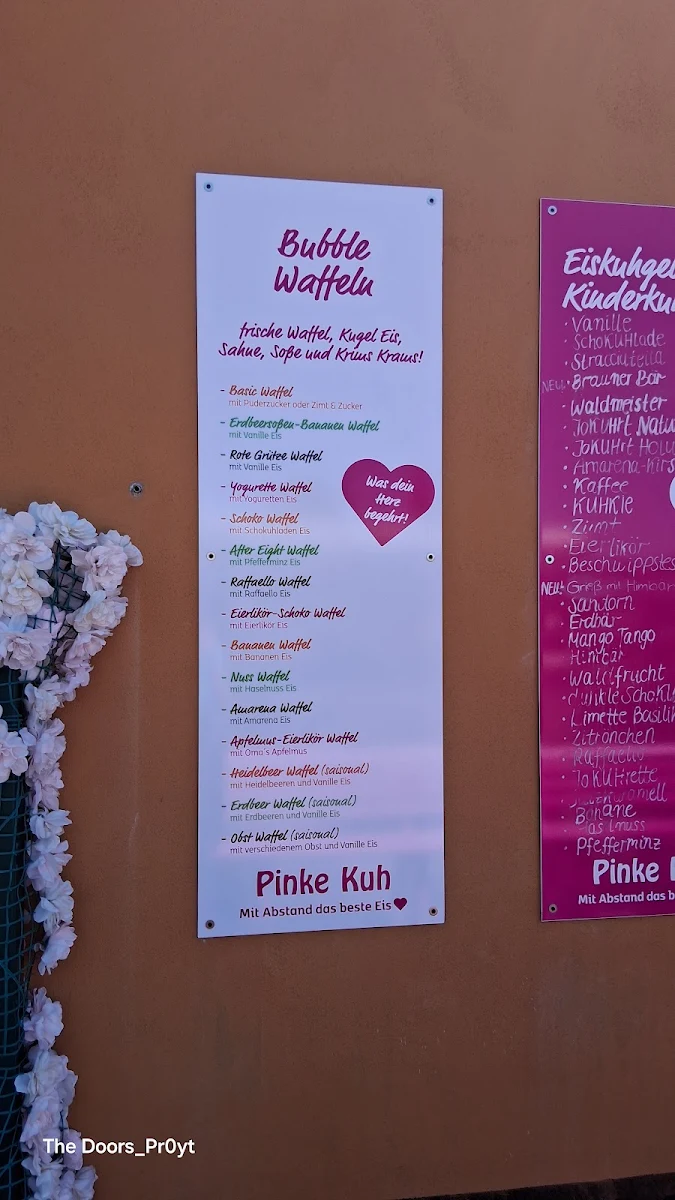 Bubble
Waffeln
frische Waffel, Kugel Eis,
Sahne, Soße und Krims Krams!
- Basic Waffel
mit Puderzucker oder Zimt & Zucker
- Erdbeersoßen-Bananen Waffel
mit Vanille Eis
- Rote Grütee Waffel
mit Vanille Eis
- Yogurette Waffel
mit Yoguretten Eis
- Schoko Waffel
mit Schokuhladen Eis
- After Eight Waffel
mit Pfefferminz Eis
- Raffaello Waffel
mit Raffaello Eis
- Eierlikör-Schoko Waffel
mit Eierlikör Eis
- Bananen Waffel
mit Bananen Eis
- Nuss Waffel
mit Haselnuss Eis
- Amarena Waffel
mit Amarena Eis
- Apfelmus-Eierlikör Waffel
mit Oma's Apfelmus
- Heidelbeer Waffel (saisonal)
mit Heidelbeeren und Vanille Eis
- Erdbeer Waffel (saisonal)
mit Erdbeeren und Vanille Eis
- Obst Waffel (saisonal)
mit verschiedenem Obst und Vanille Eis
Was dein
Herz
begehrt!
Pinke Kuh
Mit Abstand das beste Eis
Eiskuhgel
Kinderku
· Vanille
· SchoKUHlade
· Stracciatella
NEU! · Brauner Bär
· Waldmeister
· JoKUHrt Natu
· JoKUHrt Holu
· Amarena-Kirs
· Kaffee
· KUHKIE
· Zimt
· Eierlikör
· Beschwippstes
NEU! · Grieß mit Himbeer
· Sandorn
· Erdbär
· Mango Tango
· Himbär
· Waldfrucht
· dunkle SchoKU
· Limette Basilik
· Zitrönchen
· Raffaello
· JoKUHrette
· Banane
· Pfefferminz
Pinke
Mit Abstand das bes
The Doors_Pr0yt